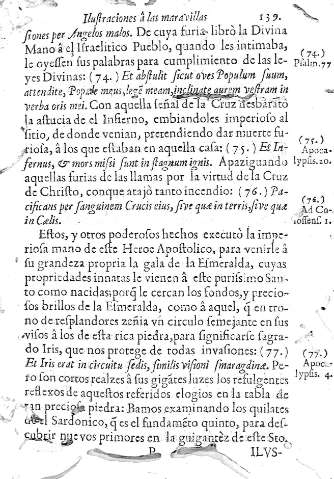 Ilustraciones â las marauillas 139.
siones per Angelos malos. De cuya furia librò la Divina
Mano â el Israelitico Pueblo, quando les intimaba,
le oyessen sus palabras para cumplimiento de las le-
yes Divinas: (74.) Et abstulit sicut oves Populum suum,
(74.)
Psalm. 77
attendite, Popule meus, legẽ meam, inclinate aurem vestram in
verba oris mei. Con aquella señal de la Cruz desbaratò
la astucia de el Infierno, embiandoles imperioso al
sitio, de donde venian, pretendiendo dar muerte fu-
riosa, â los que estaban en aquella casa: (75.) Et In-
(75.)
Apoca-
lypsis. 20.
fernus, & mors missi sunt in stagnum ignis. Apaziguando
aquellas furias de las llamas por la virtud de la Cruz
de Christo, conque atajò tanto incendio: (76.) Pa-
(76.)
Ad Co-
lossens. 1.
cificans per sanguinem Crucis eius, sive quæ in terris, sive quæ
in Cælis.
Estos, y otros poderosos hechos executò la impe-
riosa mano de este Heroe Apostolico, para venirle â
su grandeza propria la gala de la Esmeralda, cuyas
propriedades innatas le vienen â este purissimo San-
to como nacidas, porq̃ le cercan los fondos, y precio-
sos brillos de la Esmeralda, como â aquel, q̃ en tro-
no de resplandores zeñia vn circulo semejante en sus
visos â los de esta rica piedra, para significarse sagra-
do Iris, que nos protege de todas invasiones: (77.)
(77.)
Apoca-
lypsis. 4.
Et Iris erat in circuitu sedis, similis visioni smaragdinæ. Pe-
ro son cortos realzes â sus gigãtes luzes los refulgentes
reflexos de aquestos referidos elogios en la tabla de
tan preciosa piedra: Bamos examinando los quilates
del Sardonico, q̃ es el fundamẽto quinto, para des-
cubrir nuevos primores en la gigantèz de este Sto.
P ILVS-